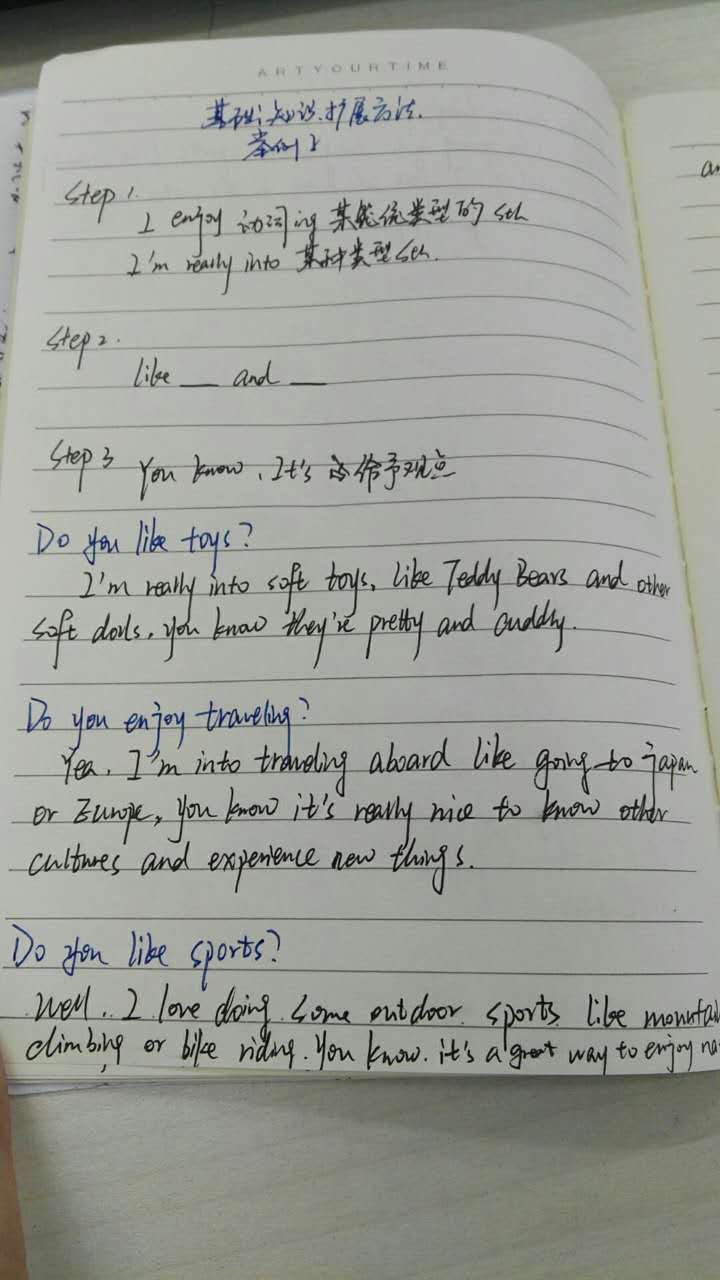 ARTYOURTIME
基础知识扩展方法.
举例
Step 1.
I enjoy 动词ing 某类型的 sth
I'm really into 某种类型 sth.
Step 2.
like __ and __
Step 3 You know, It's 给予观点
Do you like toys?
I'm really into soft toys, like Teddy Bears and other
soft dolls, you know they're pretty and cuddly.
Do you enjoy traveling?
Yea, I'm into traveling aboard like going to japan
or Europe, you know it's really nice to know other
cultures and experience new things.
Do you like sports?
Well, I love doing some outdoor sports like mountai
climbing or bike riding. You know. it's a great way to enjoy na